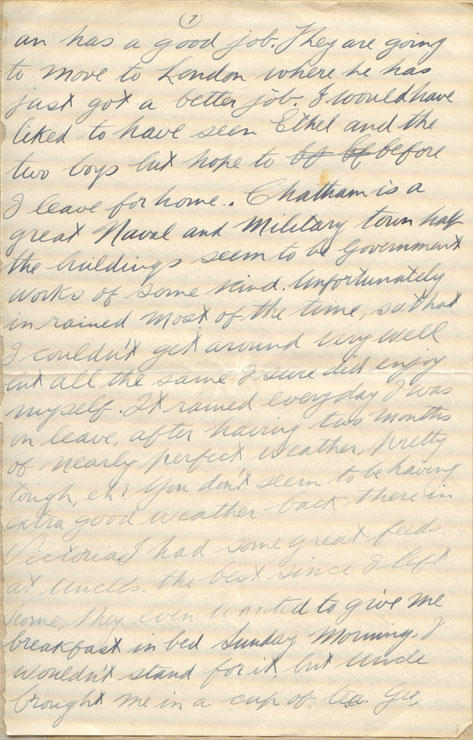 (7)
an has a good job. They are going
to move to London where he has
just got a better job. I would have
liked to have seen Ethel and the
two boys but hope to before
I leave for home.. Chatham is a
great Naval and Military town half
the buildings seem to be Government
works of some kind. Unfortunately
in rained most of the time, so that
I couldn't get around very well
but all the same I sure did enjoy
myself. It rained everyday I was
on leave, after having two months
of nearly perfect weather, pretty
tough, eh? You don't seem to be having
extra good weather back there in
Victoria. I had some great feeds
at Uncles. the best since I left
home, they even wanted to give me
breakfast in bed Sunday Morning. I
wouldn't stand for it, but Uncle
brought me in a cup of tea. Gee,